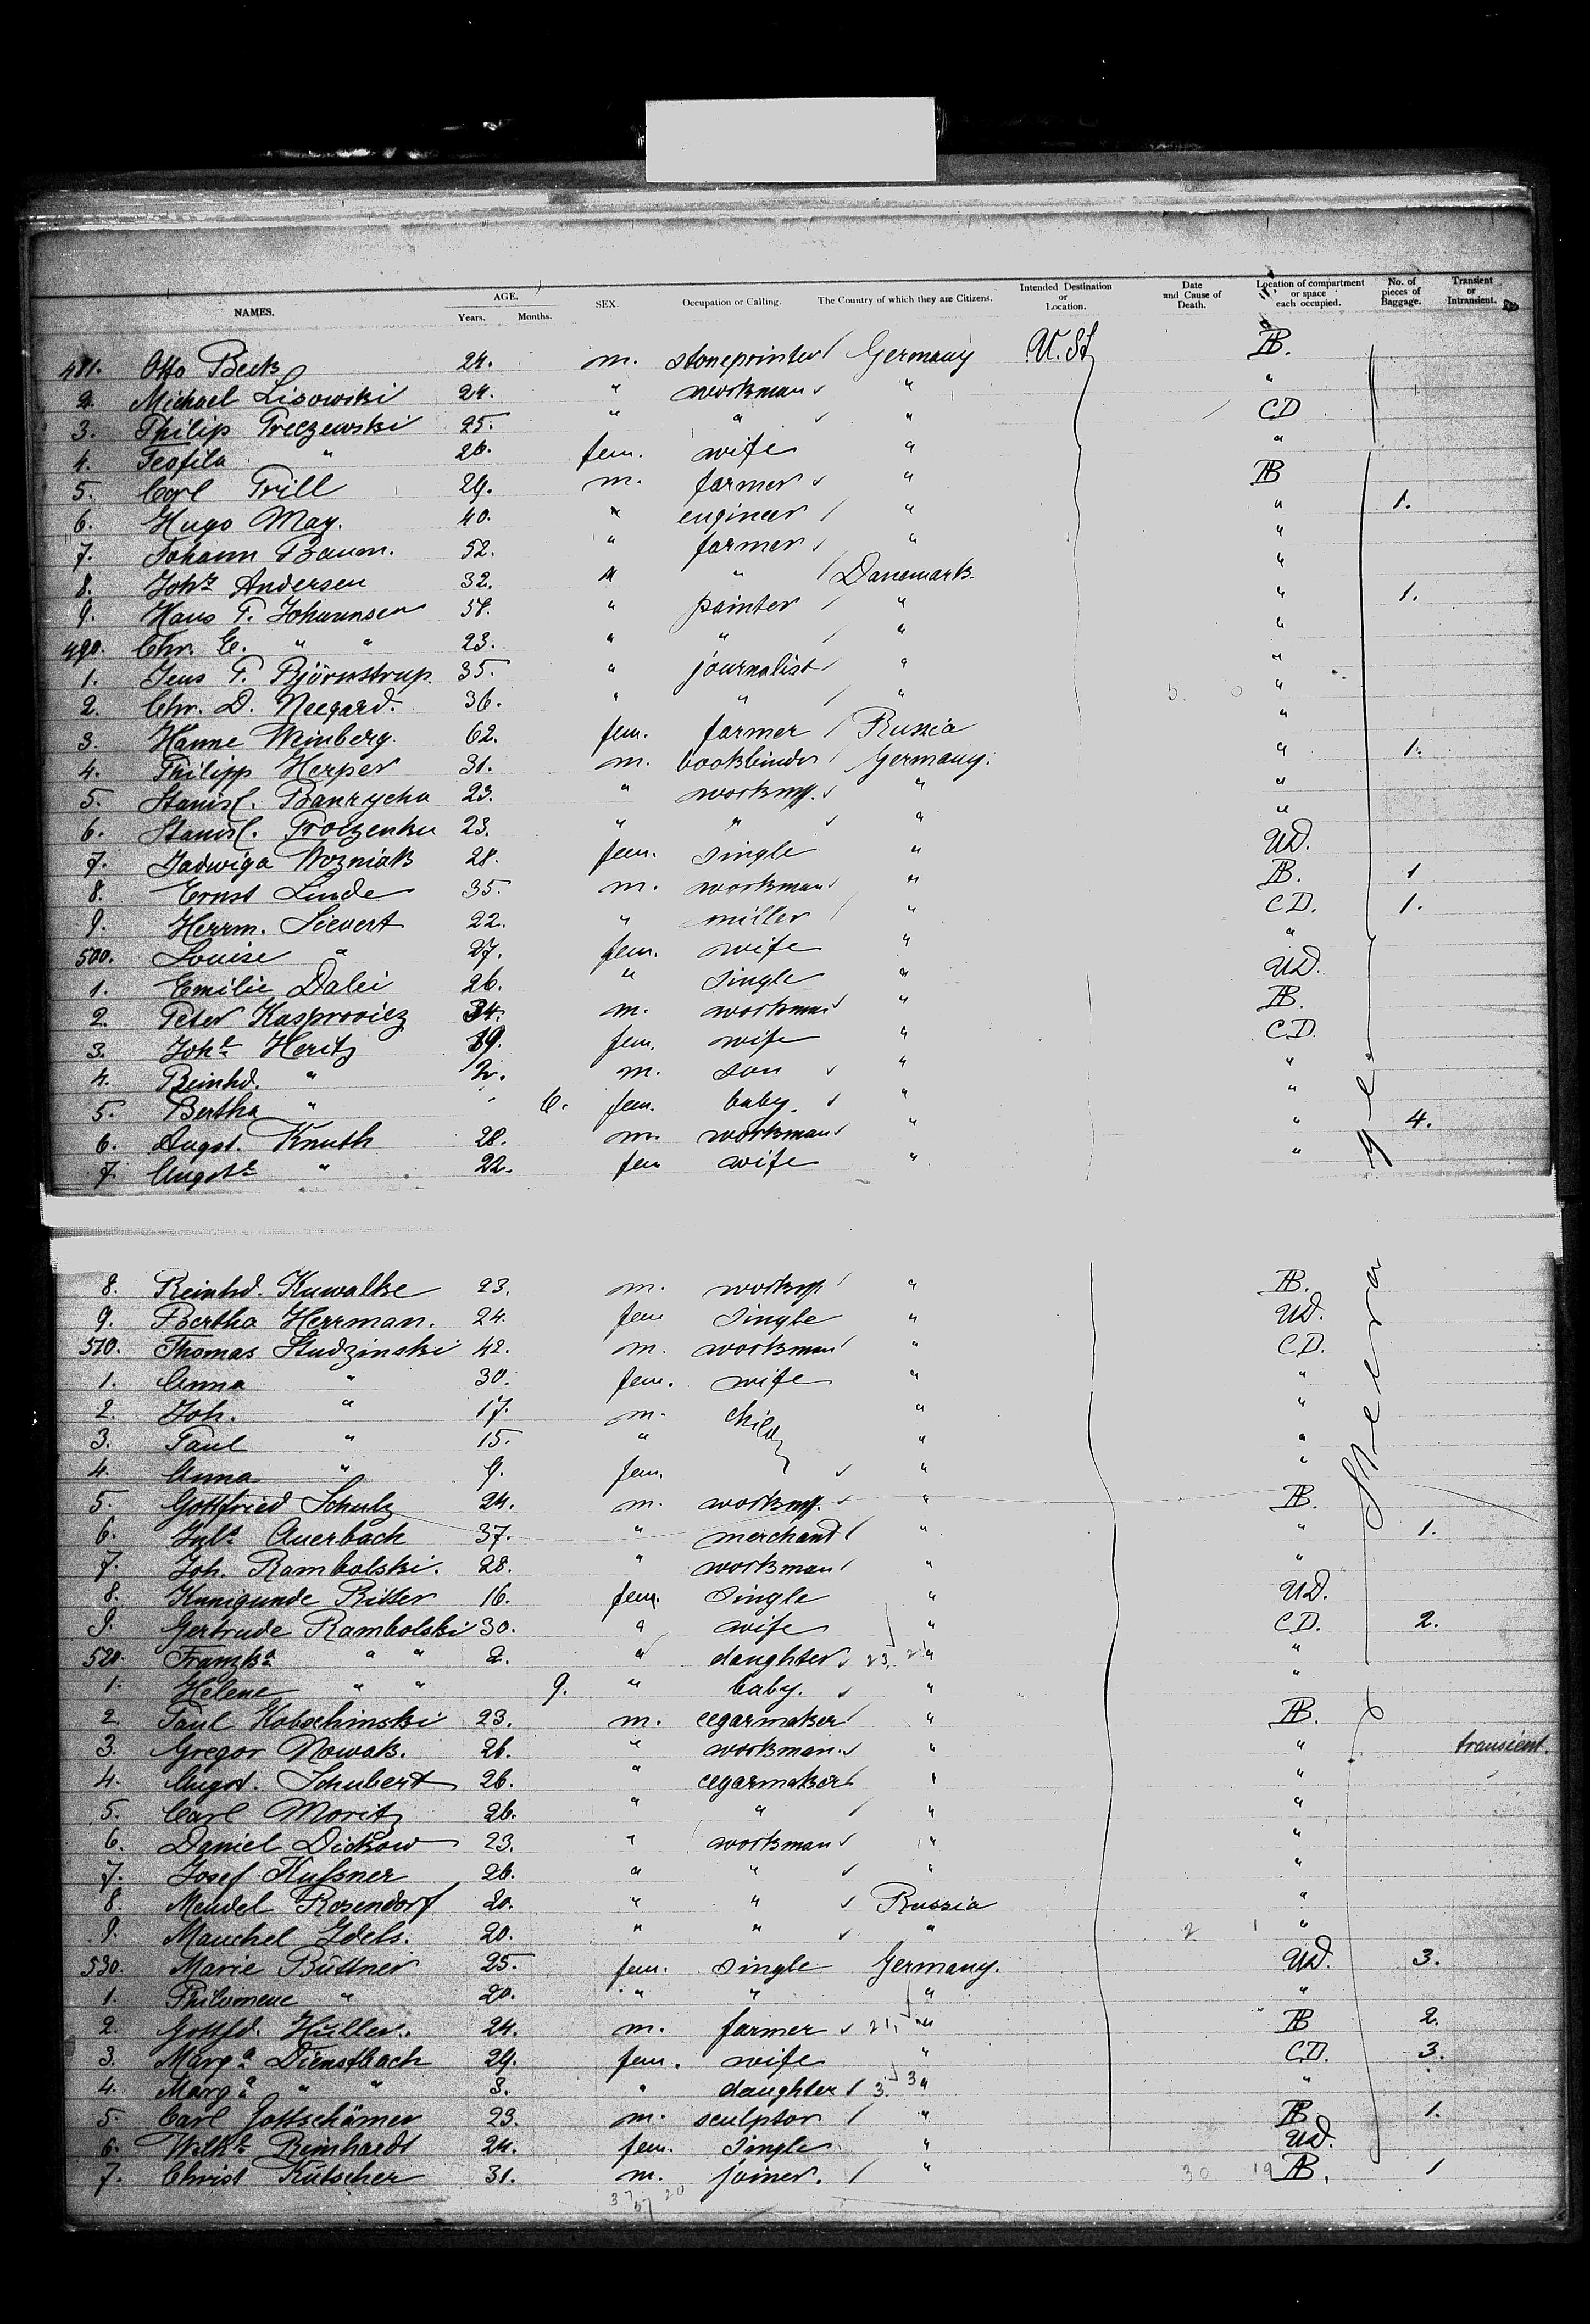 NAMES. AGE. Years. Months. SEX. Occupation or Calling. The Country of which they are Citizens. Intended Destination or Location. Date and Cause of Death. Location of compartment or space each occupied. No. of pieces of Baggage. Transient or Intransient.
481. Otto Beck 24. m. stoneprinter Germany U. St AB.
2. Michael Lisowski 24. " workman " "
3. Philip Preczewski 25. " " " CD
4. Teofila " 26. fem. wife " "
5. Carl Prill 29. m. farmer " AB
6. Hugo May. 40. " engineer " " 1.
7. Johann Baum. 52. " farmer " "
8. Johs Andersen 32. " " Danemark. "
9. Hans P. Johannsen 58. " painter " " 1.
490. Chr. E. " " 23. " " " "
1. Jens P. Björnstrup. 35. " journalist " "
2. Chr. D. Neegard. 36. " " " "
3. Hanne Weinberg. 62. fem. farmer Russia "
4. Philipp Herper 31. m. bookbinder Germany. " 1.
5. Stanisl. 23. " workm. " "
6. Stanisl. 23. " " " "
7. Jadwiga Wozniak 28. fem. single " UD.
8. Ernst Linde 35. m. workman " AB. 1
9. Herrm. Sievert 22. " miller " CD. 1.
500. Louise " 27. fem. wife " "
1. Emilie Dalei 26. " single " UD.
2. Peter Kasprovicz 34. m. workman " AB.
3. Johe Heritz 39. fem. wife " CD.
4. Reinhd. " 2. m. son " "
5. Bertha " 6. fem. baby. " "
6. Augst. Knuth 28. m. workman " " 4.
7. Augste " 22. fem wife " "
8. Reinhd. Kuwalke 23. m. workm. " AB.
9. Bertha Herrman. 24. fem single " UD.
510. Thomas Studzinski 42. m. workman " CD.
1. Anna " 30. fem. wife " "
2. Joh. " 17. m. child " "
3. Paul " 15. " " "
4. Anna " 9. fem. " "
5. Gottfried Schulz 24. m. workm. " AB.
6. Juls Auerbach 37. " merchant " " 1.
7. Joh. Rambolski. 28. " workman " "
8. Kunigunde Ritter 16. fem. single " UD.
9. Gertrude Rambolski 30. " wife " CD. 2.
520. Franzka " " 2. " daughter 23 2 " "
1. Helene " " 9. " baby. " "
2. Paul Kobschinski 23. m. cegarmaker " AB.
3. Gregor Nowak. 26. " workman. " " transient.
4. Augst. Schubert 26. " cegarmaker " "
5. Carl Moritz 26. " " " "
6. Daniel Dickow 23. " workman " "
7. Josef Kußner 26. " " " "
8. Mendel Rosendorf 20. " " Russia "
9. Mauchel Idels. 20. " " " 2 1 "
530. Marie Büttner 25. fem. single Germany. UD. 3.
1. Philomene " 20. " " " "
2. Gottfd. Hüller. 24. m. farmer 21 " AB 2.
3. Marga Dienstbach 29. fem. wife " CD. 3.
4. Marga " " 3. " daughter 3. 3 " "
5. Carl Gottschämer 23. m. sculptor " AB 1.
6. Wilhe Reinhardt 24. fem. single " UD.
7. Christ Kutscher 31. m. joiner. " 30 19 AB. 1
Steerage